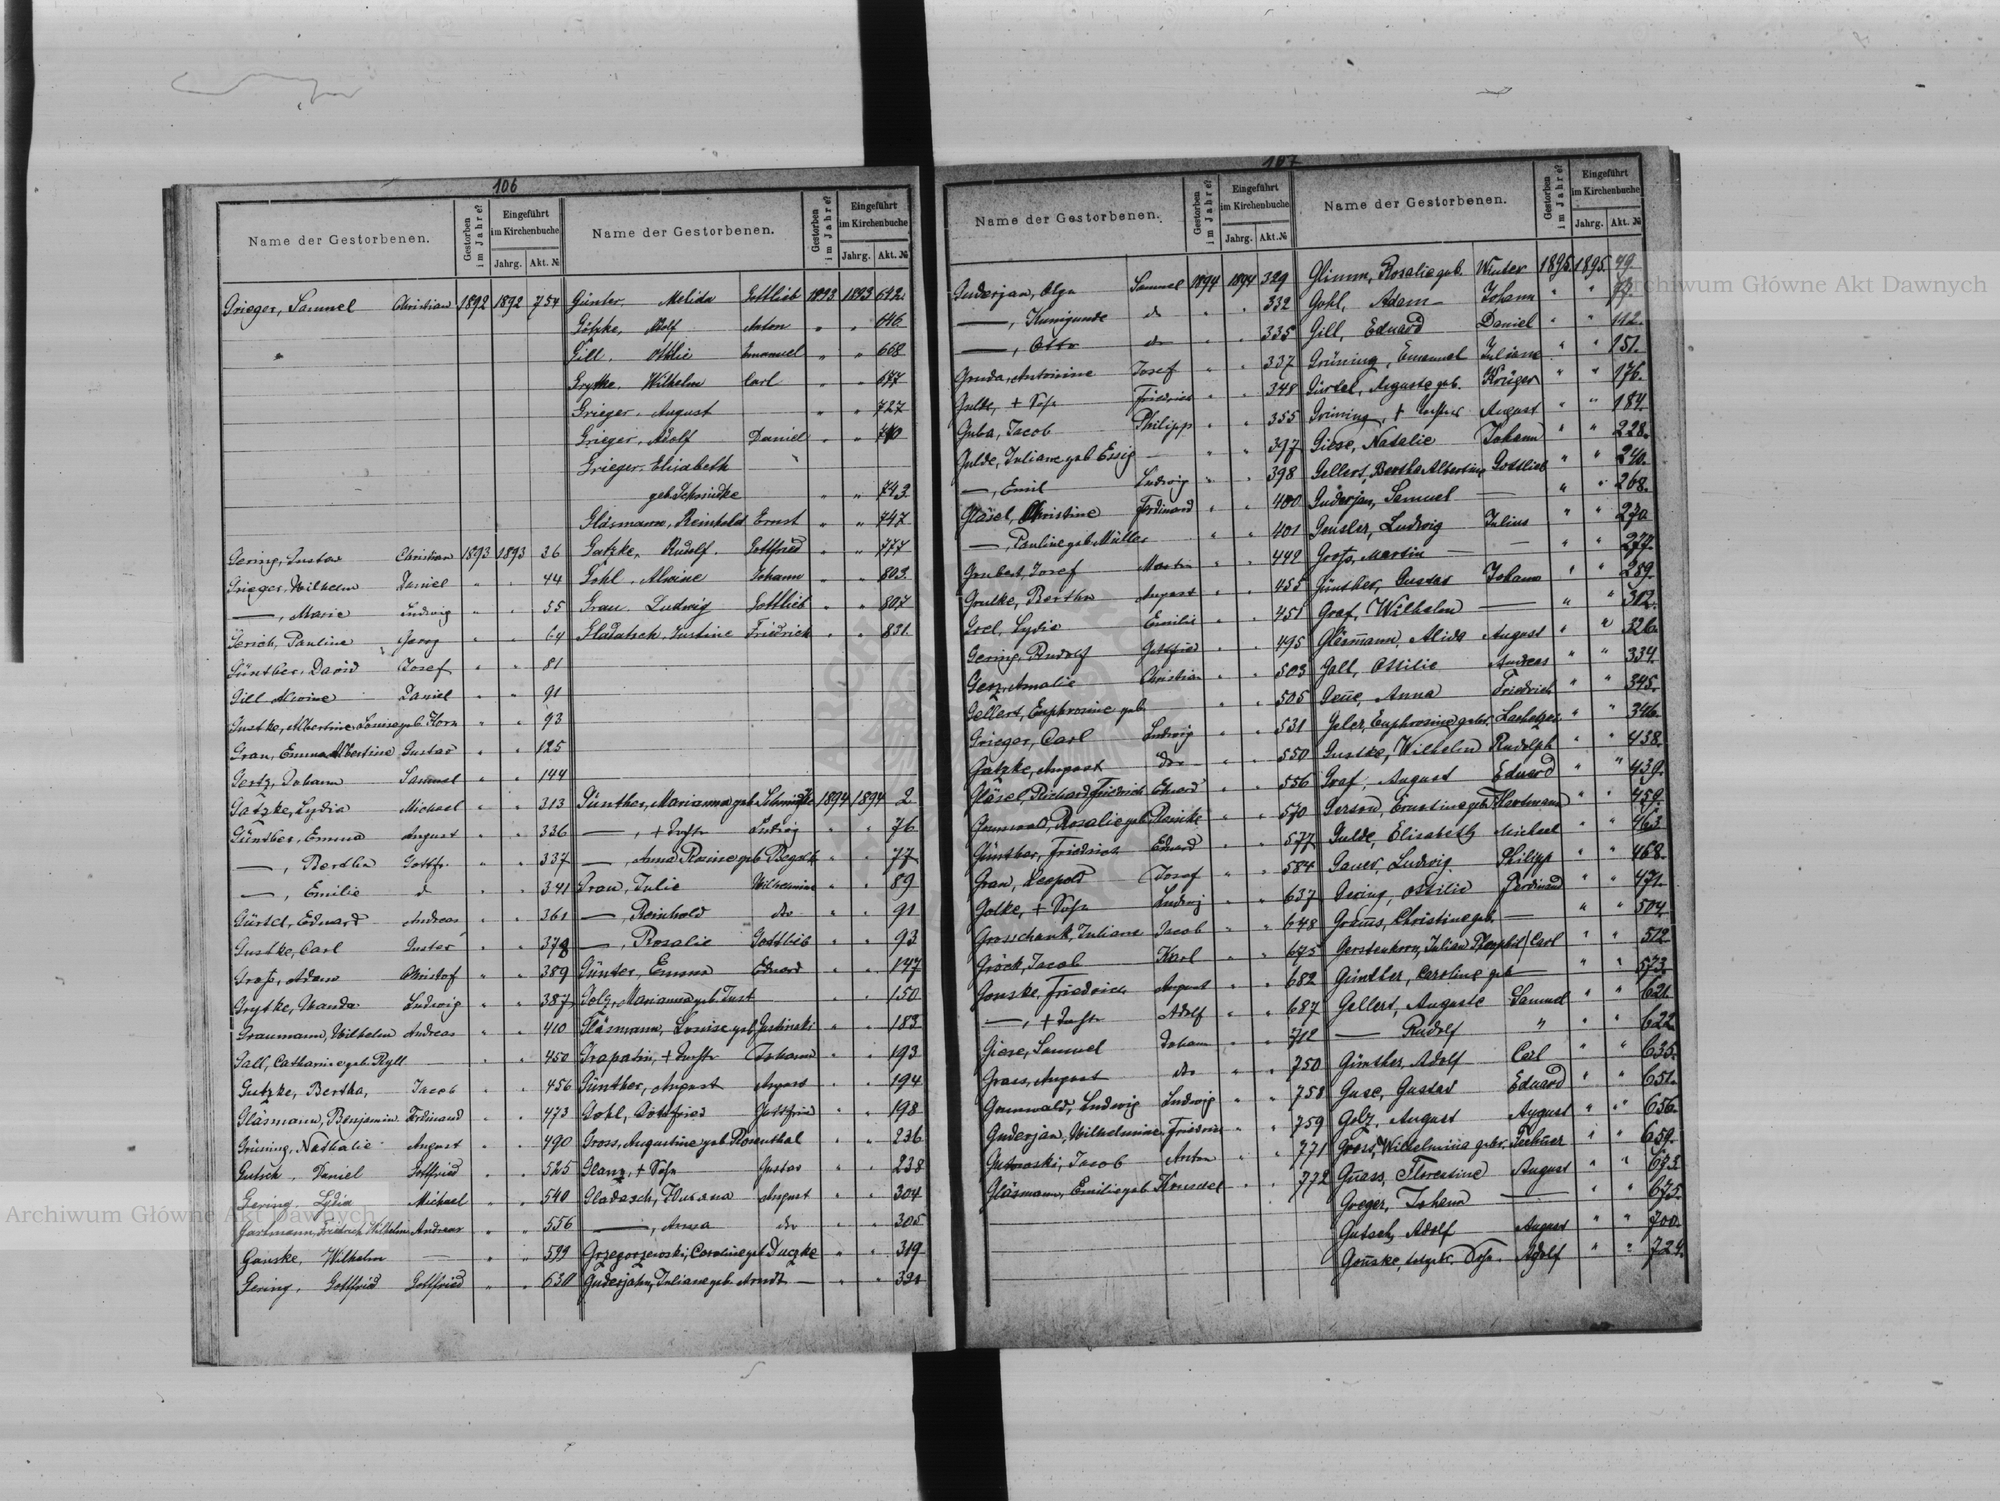 106
Name der Gestorbenen. Gestorben im Jahre? Eingeführt im Kirchenbuche Jahrg. Akt. №
Grieger, Samuel Christian 1892 1892 754
Gering, Gustav Christian 1893 1893 26
Grieger, Wilhelm Daniel " " 44
—, Marie Ludwig " " 55
Gerich, Pauline Georg " " 64
Günther, David Josef " " 81
Gill Alwine Daniel " " 91
Gustke, Albertine Louise geb. Horn " " 93
Grau, Emma Albertine Gustav " " 125
Gertz, Johann Samuel " " 144
Gatzke, Lydia Michael " " 313
Günther, Emma August " " 336
—, Bertha Gottfr. " " 337
—, Emilie d " " 341
Gürtel, Eduard Andreas " " 361
Gustke, Carl Gustav " " 378
Groß, Adam Christof " " 389
Grytke, Wanda Ludwig " " 387
Graumann, Wilhelm Andreas " " 410
Gall, Catharine geb. Ryll — " " 450
Gutzke, Bertha, Jacob " " 456
Gläsmann, Benjamin Ferdinand " " 473
Grüning, Nathalie August " " 490
Gutsch, Daniel Gottfried " " 525
Gering, Lydia Michael " " 540
Garlmann, Friedrich Wilhelm Andreas " " 556
Ganske, Wilhelm — " " 599
Gering, Gottfried Gottfried " " 630
Name der Gestorbenen. Gestorben im Jahre? Eingeführt im Kirchenbuche Jahrg. Akt. №
Günter, Melida Gottlieb 1893 1893 642.
Götzke, Adolf Anton " " 646
Gill, Ottilie Emanuel " " 668
Grytke, Wilhelm Carl " " 677
Grieger, August " " 727
Grieger, Adolf Daniel " " 740
Grieger, Elisabeth
geb. Schmidke " " 743.
Gläsmann, Reinhold Ernst " " 747
Gatzke, Rudolf. Gottfried " " 777
Gohl, Alwine Johann " " 803.
Grau, Ludwig Gottlieb " " 807
Gladatsch, Justine Friedrich " " 831
Günther, Marianna geb. Schmidtke 1894 1894 2
—, + Tochter Ludwig " " 76
—, Anna Rosine geb. " " 77
Grau, Julie Wilhelmine " " 89
— Reinhold do " " 91
—, Rosalie Gottlieb " " 93
Günter, Emma Eduard " " 147
Golz, Marianna geb. Just " " 150
Gläsmann, Louise geb. Justinski " " 183
Grapatin, + Tochter Johann " " 193
Günther, August August " " 194
Gohl, Gottfried Gottfried " " 198
Gross, Augustine geb. Rosenthal " " 236
Glanz, + Sohn Gustav " " 238
Gladasch, Zuzana August " " 304
—, Anna do " " 305
Grzegorzewski, Caroline geb. Duczke " " 319
Guderjahn, Juliane geb. Arndt — " " 321
107
Name der Gestorbenen. Gestorben im Jahre? Eingeführt im Kirchenbuche Jahrg. Akt. №
Guderjan, Olga Samuel 1894 1894 329
—, Kunigunde do " " 332
—, Otto do " " 335
Gruda, Antonine Josef " " 337
Gulke, + Sohn Friedrich " " 348
Guba, Jacob Philipp " " 355
Gulde, Juliane geb. Essig — " " 397
—, Emil Ludwig " " 398
Gläsel, Christine Ferdinand " " 400
—, Pauline geb. Müller " " 401
Grubert, Josef Martin " " 449
Grulke, Bertha August " " 455
Grel, Lydia Emilie " " 451
Gering, Rudolf Gottfried " " 495
Genz, Amalie Christian " " 503
Gellert, Euphrosine geb. " " 505
Grieger, Carl Ludwig " " 531
Gatzke, August do " " 550
Gläsel, Richard Friedrich Eduard " " 556
Grunwald, Rosalie geb. Reinike " " 570
Günther, Friedrich Eduard " " 577
Grau, Leopold Josef " " 584
Golke, + Sohn Ludwig " " 637
Grosschank, Juliane Jacob " " 648
Gröck, Jacob Karl " " 675
Gonske, Friedrich August " " 682
—, + Tochter Adolf " " 687
Giese, Samuel Johann " " 712
Grass, August do " " 750
Grunwald, Ludwig Ludwig " " 758
Guderjan, Wilhelmine Friedrich " " 759
Gutowski, Jacob Anton " " 771
Gläsmann, Emilie geb. " " 772
Name der Gestorbenen. Gestorben im Jahre? Eingeführt im Kirchenbuche Jahrg. Akt. №
Glimm, Rosalie geb. Winter 1895. 1895. 49.
Gohl, Adam Johann " "
Gill, Eduard Daniel " " 112.
Grüning, Emanuel Juliane " " 151.
Gürtel, Auguste geb. Krüger " " 176.
Grüning, + Tochter August " " 184.
Giese, Natalie Johann " " 228.
Gellert, Bertha Albertine Gottlieb " " 240.
Guderjan, Samuel — " " 268.
Gensler, Ludwig Julius " " 270
Groß, Martin — — " " 279.
Günther, Gustav Johann " " 289.
Graf, Wilhelm — " " 312.
Gläsmann, Alida August " " 326.
Gall, Ottilie Andreas " " 334.
Geue, Anna Friedrich " " 345.
Geler, Euphrosine gebr. " " 346.
Gustke, Wilhelm Rudolph " " 438.
Graf, August Eduard " " 439.
Gerson, Ernstine geb. Hartmann " " 459.
Gulde, Elisabeth Michael " " 463.
Gauer, Ludwig Philipp " " 468.
Gering, Ottilie Ferdinand " " 471.
Grauss, Christine geb. — " " 504.
Gerstenkorn, Julian Theophil Carl " " 512
Günther, Caroline geb. — " " 573.
Gellert, Auguste Samuel " " 621.
— Rudolf " " " 622.
Günther, Adolf Carl " " 635.
Guse, Gustav Eduard " " 651.
Golz, August August " " 656.
Gross, Wilhelmina gebr. " " 659.
Guass, Florentine August " " 673.
Greger, Johann — " " 675.
Gutsch, Adolf August " " 700.
Gonske, totgeb. Sohn. Adolf " " 724.
Archiwum Główne Akt Dawnych
Archiwum Główne Akt Dawnych